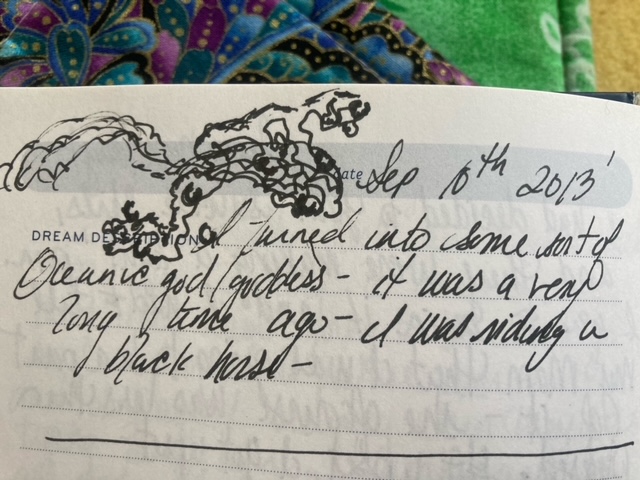 ate Sep 10th 2013'
DREAM DESCRIPTION I turned into some sort of
Oceanic god/goddess - it was a very
long time ago - I was riding a
black horse -